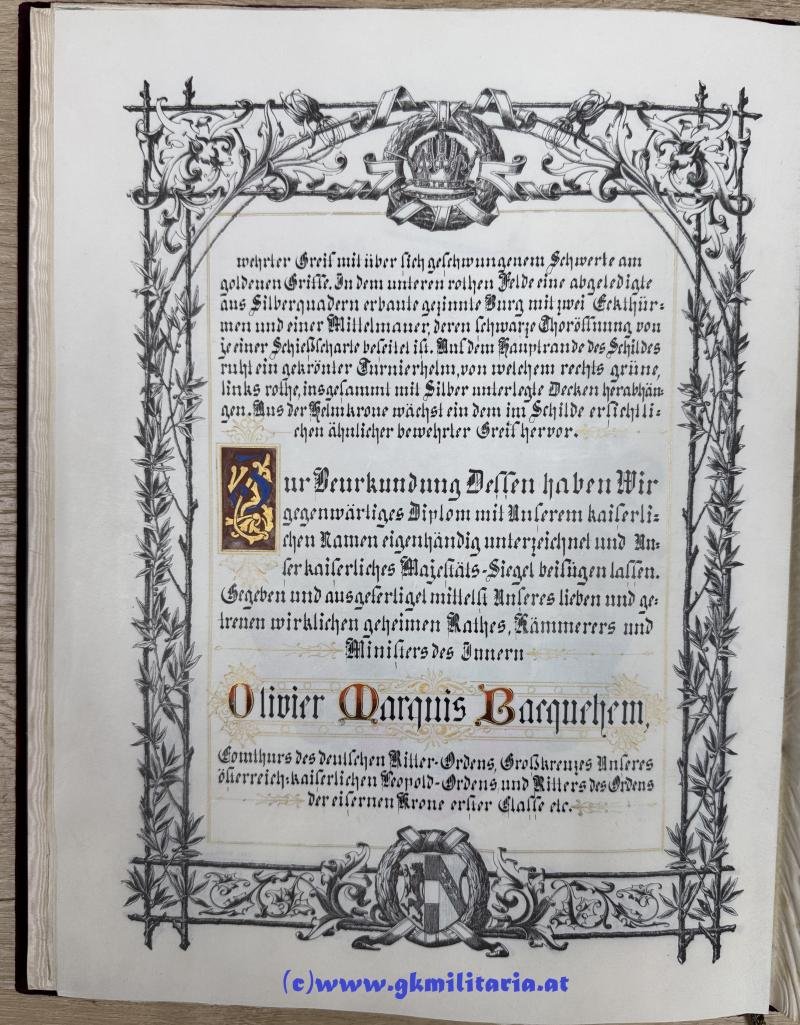 wehrter Greif mit über sich geschwungenem Schwerte am
goldenen Griffe. In dem unteren rothen Felde eine abgeledigte
aus Silberquadern erbaute gezinnte Burg mit zwei Eckthür-
men und einer Mittelmauer, deren schwarze Thoröffnung von
je einer Schießscharte beseitet ist. Auf dem Hauptrande des Schildes
ruht ein gekrönter Turnierhelm, von welchem rechts grüne,
links rothe, insgesammt mit Silber unterlegte Decken herabhän-
gen. Aus der Helmkrone wächst ein dem im Schilde ersichtli-
chen ähnlicher bewehrter Greif hervor.
Zur Beurkundung Dessen haben Wir
gegenwärtiges Diplom mit Unserem kaiserli-
chen Namen eigenhändig unterzeichnet und Un-
ser kaiserliches Majestäts-Siegel beifügen lassen.
Gegeben und ausgefertiget mittelst Unseres lieben und ge-
treuen wirklichen geheimen Rathes, Kämmerers und
Ministers des Innern
Olivier Marquis Bacquehem,
Comthurs des deutschen Ritter-Ordens, Großkreuzes Unseres
österreich:kaiserlichen Leopold-Ordens und Ritters des Ordens
der eisernen Krone erster Classe etc.
(c)www.gkmilitaria.at